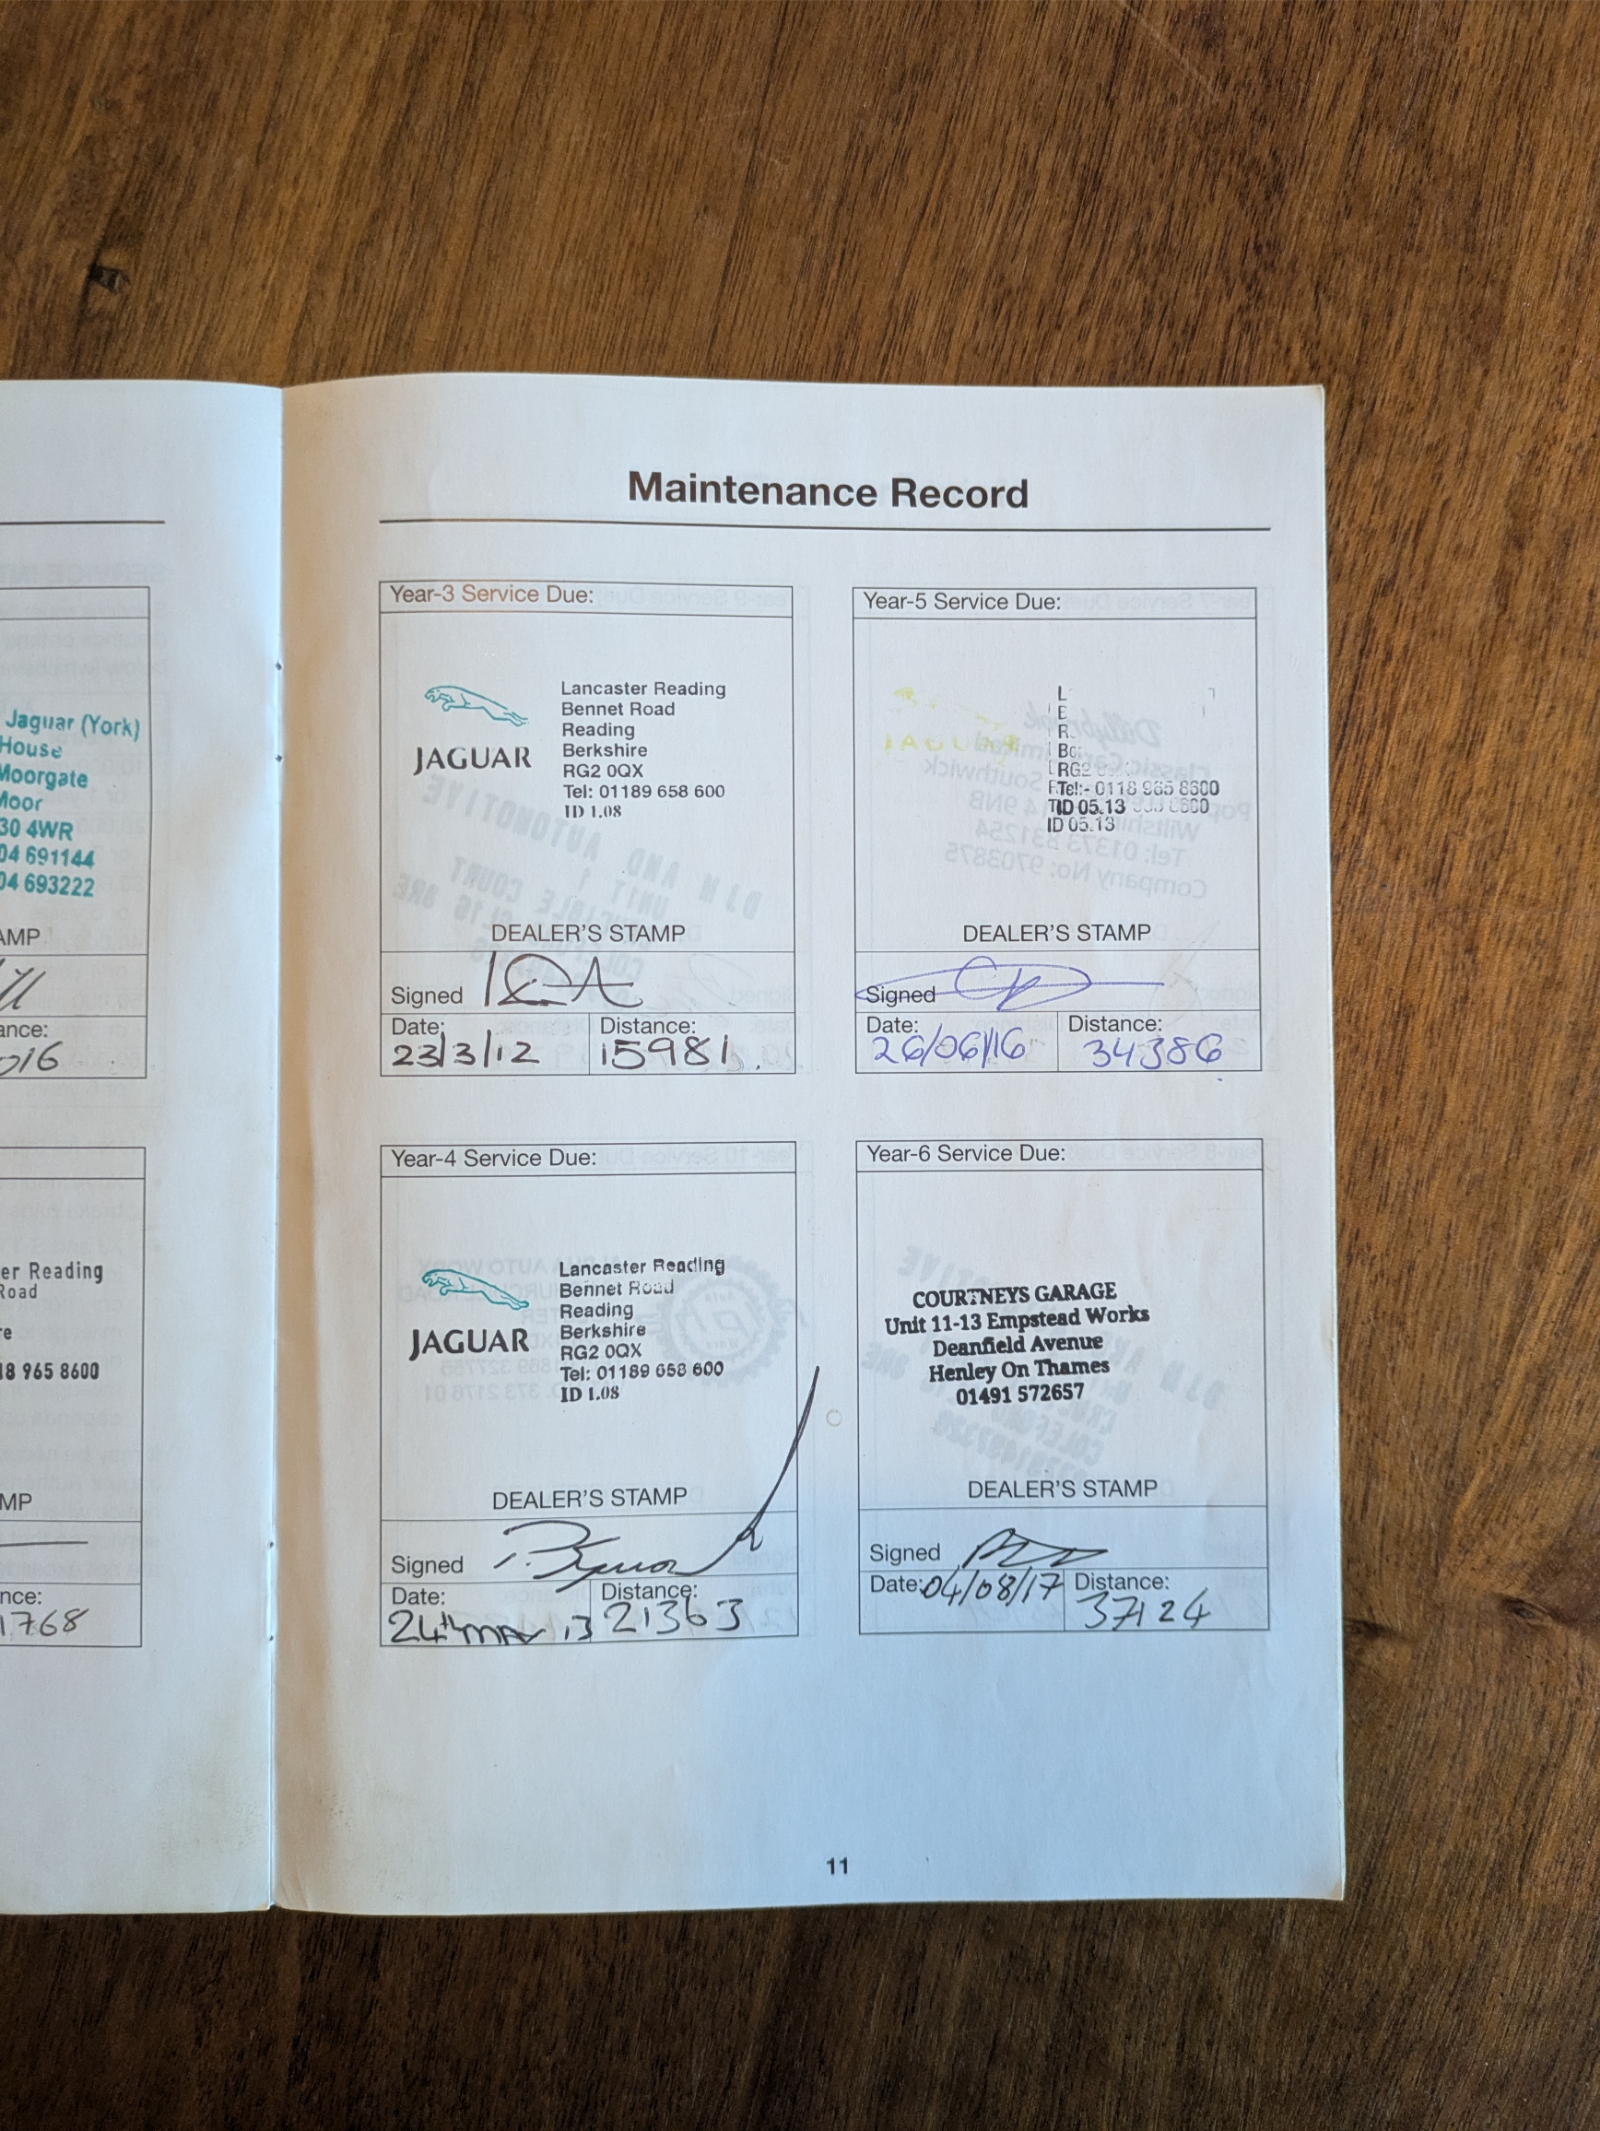 Jaguar (York)
House
Moorgate
Moor
30 4WR
04 691144
04 693222
AMP
ance:
016
er Reading
Road
re
18 965 8600
MP
nce:
1768
Maintenance Record
Year-3 Service Due:
JAGUAR
Lancaster Reading
Bennet Road
Reading
Berkshire
RG2 0QX
Tel: 01189 658 600
ID 1.08
DEALER'S STAMP
Signed
Date: Distance:
23/3/12 15981
Year-5 Service Due:
JAGUAR
L
E
R
RG2
Tel:- 0118 965 8600
ID 05.13
ID 05.13
DEALER'S STAMP
Signed
Date: Distance:
26/06/16 34386
Year-4 Service Due:
JAGUAR
Lancaster Reading
Bennet Road
Reading
Berkshire
RG2 0QX
Tel: 01189 658 600
ID 1.08
DEALER'S STAMP
Signed
Date: Distance:
24th May 13 21363
Year-6 Service Due:
COURTNEYS GARAGE
Unit 11-13 Empstead Works
Deanfield Avenue
Henley On Thames
01491 572657
DEALER'S STAMP
Signed
Date: 04/08/17 Distance:
37124
11